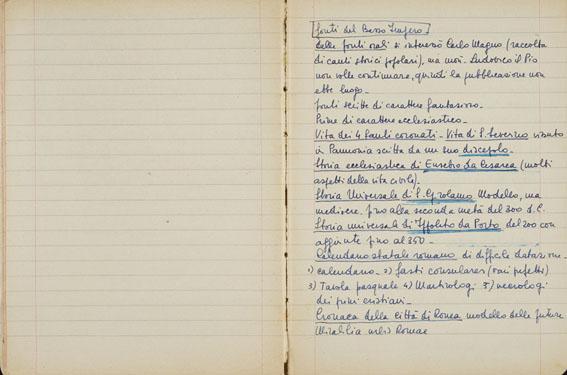 Fonti del Basso Impero
delle fonti orali si interessò Carlo Magno (raccolta
di canti storici popolari), ma morì. Ludovico il Pio
non volle continuare, quindi la pubblicazione non
ebbe luogo -
Fonti scritte di carattere fantasioso.
Prime di carattere ecclesiastico -
Vita dei 4 Santi coronati - Vita di S. Severino vissuto
in Pannonia scritta da un suo discepolo -
Storia ecclesiastica di Eusebio da Cesarea (molti
aspetti della vita civile).
Storia Universale di S. Girolamo modello, ma
mediocre. fino alla seconda metà del 300 d.C.
Storia universale di Ippolito da Porto del 200 con
aggiunte fino al 350 -
Calendario statale romano di difficile datazione -
1) calendario - 2) fasti consulares (vari prefetti)
3) Tavola pasquale 4) Martirologi 5) necrologi
dei primi cristiani -
Cronaca della città di Roma modello delle future
Mirabilia urbis Romae